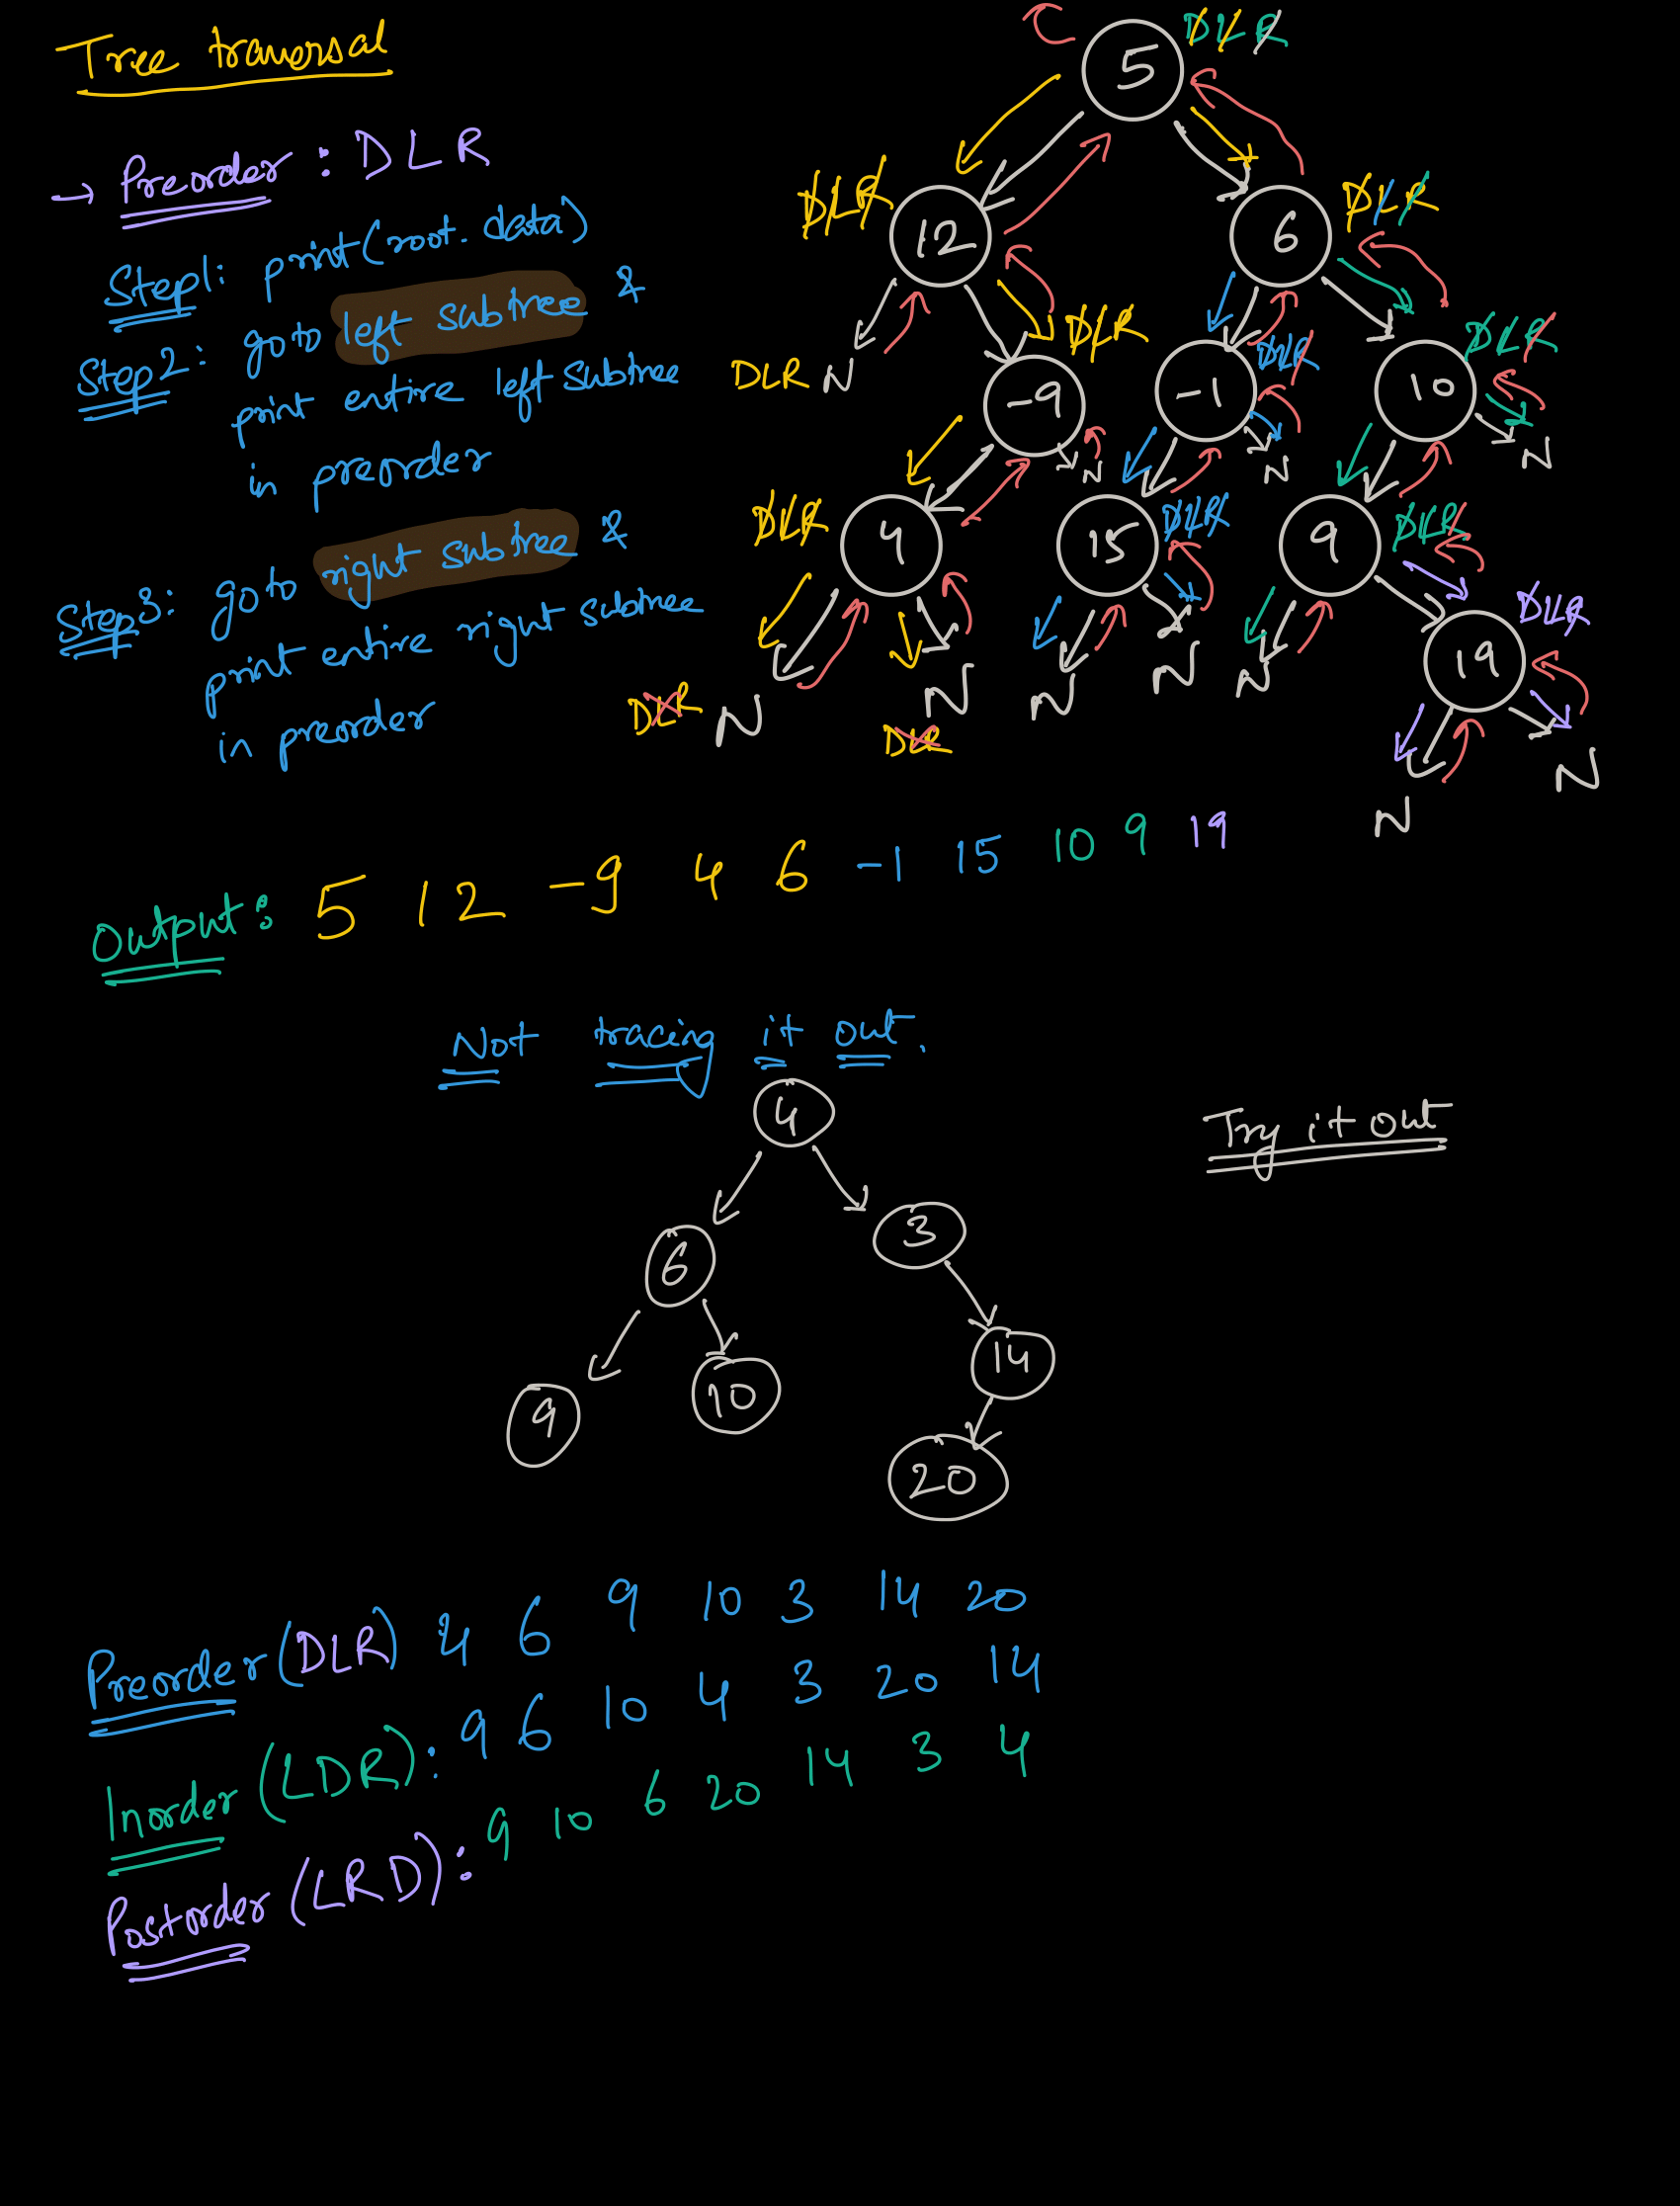 Tree traversal
→ Preorder : DLR
Step1: print(root.data)
Step2: goto left subtree &
print entire left subtree
in preorder
Step3: goto right subtree &
print entire right subtree
in preorder
5 DLR
12 DLR
6 DLR
DLR N
-9 DLR
-1 DLR
10 DLR
N
N
N
4 DLR
15 DLR
9 DLR
DLR N
N
DLR
N
N
N
19 DLR
N
N
Output: 5 12 -9 4 6 -1 15 10 9 19
Not tracing it out.
Try it out
4
6
3
9
10
14
20
Preorder (DLR) 4 6 9 10 3 14 20
Inorder (LDR): 9 6 10 4 3 20 14
Postorder (LRD): 9 10 6 20 14 3 4